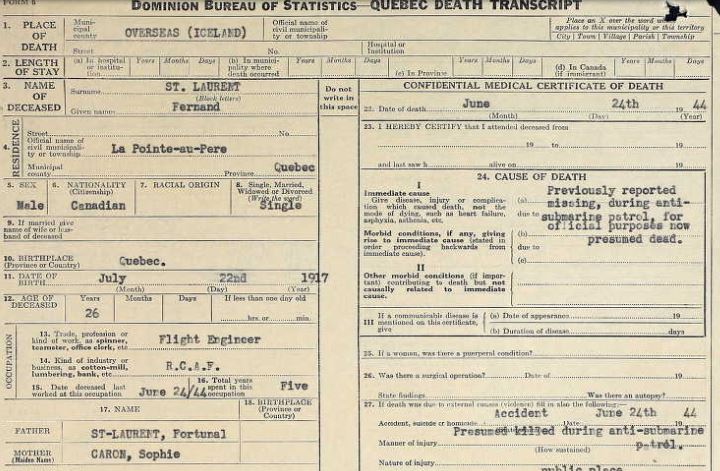 FORM 6
DOMINION BUREAU OF STATISTICS—QUEBEC DEATH TRANSCRIPT
1. PLACE OF DEATH
Municipal county
OVERSEAS (ICELAND)
Official name of civil municipality or township
Place an X over the word which applies to this municipality or this territory
City | Town | Village | Parish | Township
Street
No.
Hospital or Institution
2. LENGTH OF STAY
(a) In hospital or institution
Years Months Days
(b) In municipality where death occurred
Years Months Days
(c) In Province
Years Months Days
(d) In Canada (if immigrant)
Years Months Days
3. NAME OF DECEASED
Surname ST. LAURENT
(Block letters)
Given name Fernand
Do not write in this space
4. RESIDENCE
Street No.
Official name of civil municipality or township
La Pointe-au-Pere
Municipal county
Province Quebec
5. SEX
Male
6. NATIONALITY (Citizenship)
Canadian
7. RACIAL ORIGIN
8. Single, Married, Widowed or Divorced (Write the word)
Single
9. If married give name of wife or husband of deceased
10. BIRTHPLACE (Province or Country)
Quebec.
11. DATE OF BIRTH
July 22nd 1917
(Month) (Day) (Year)
12. AGE OF DECEASED
Years Months Days If less than one day old
26
hrs. or min.
OCCUPATION
13. Trade, profession or kind of work, as spinner, teamster, office clerk, etc
Flight Engineer
14. Kind of industry or business, as cotton-mill, lumbering, bank, etc
R.C.A.F.
15. Date deceased last worked at this occupation
June 24/44
16. Total years spent in this occupation
Five
17. NAME
18. BIRTHPLACE (Province or Country)
FATHER
ST-LAURENT, Fortunal
MOTHER (Maiden Name)
CARON, Sophie
CONFIDENTIAL MEDICAL CERTIFICATE OF DEATH
22. Date of death June 24th 19 44
(Month) (Day) (Year)
23. I HEREBY CERTIFY that I attended deceased from
19 to 19
and last saw h alive on 19
24. CAUSE OF DEATH
I
Immediate cause
Give disease, injury or complication which caused death, not the mode of dying, such as heart failure, asphyxia, asthenia, etc.
Morbid conditions, if any, giving rise to immediate cause (stated in order proceeding backwards from immediate cause).
(a) Previously reported
missing, during anti-
due to submarine patrol, for
(b) official purposes now
due to presumed dead.
(c)
II
Other morbid conditions (if important) contributing to death but not causally related to immediate cause.
III If a communicable disease is mentioned on this certificate, give
(a) Date of appearance 19
(b) Duration of disease days
25. If a woman, was there a puerperal condition?
26. Was there a surgical operation? Date of 19
State findings Was there an autopsy?
27. If death was due to external causes (violence) fill in also the following:—
Accident June 24th 44
Accident, suicide or homicide Date 19
Presumed killed during anti-submarine
Manner of injury patrol.
(How sustained)
Nature of injury
public place